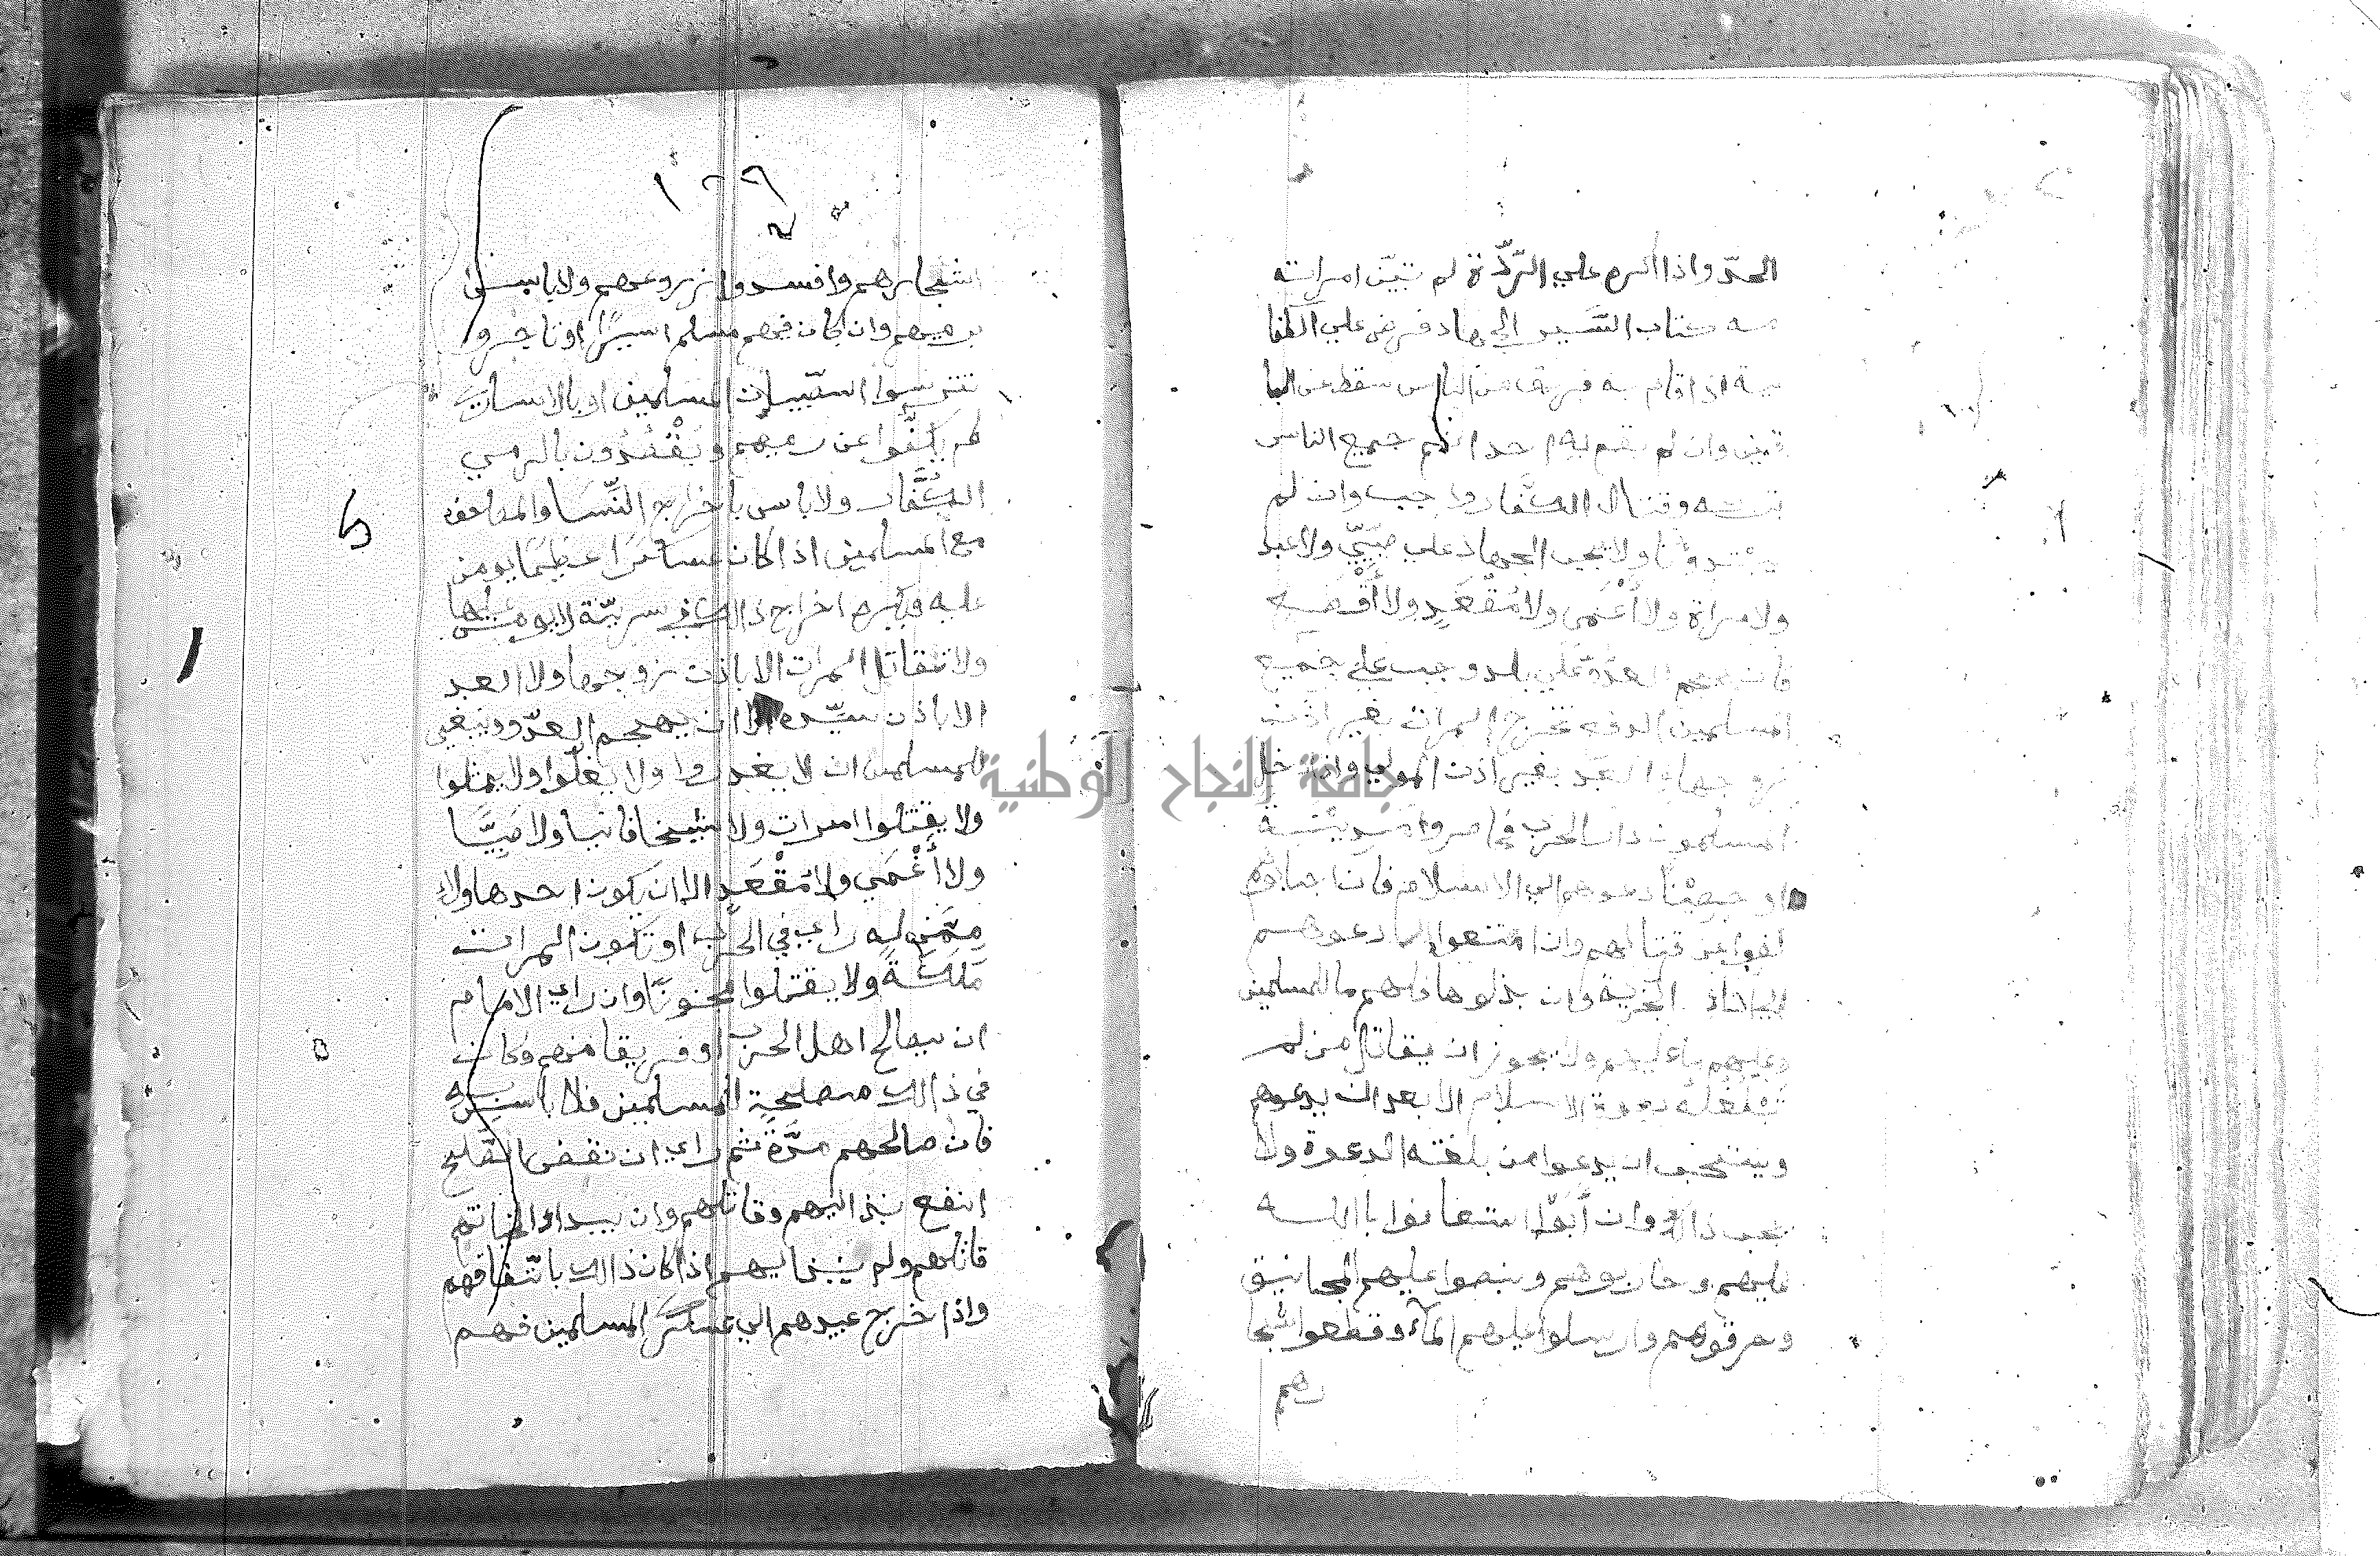 الحدّ واذا اكره علي الرّدّة لم تبيّن امراته
كتاب السّير الجهاد فرض علي الكفا
ية اذا قام به فريق من الناس سقط عن البا
قين وان لم يقم به احد اثم جميع الناس
بتركه وقتال الكفّار واجب وان لم
يبْتدونا ولا يجب الجهاد علي صَبِيّ ولا عبد
ولا مراة ولا أَعْمَى ولا مُقْعَدٍ ولا أَقْطَع
فان هجم العدوّ علي بلد وجب علي جميع
المسلمين الدفع تخرج المرات بغير اذن
زوجها والعبد بغير اذن المولي واذا دخل
المسلمون دار الحرب فحاصروا مدينة
او حِصْنا دعوهم الي الاسلام فان اجابوهم
كفوا عن قتالهم وان امتنعوا دعوهم
الي اداء الجزية وان بذلوها فلهم ما للمسلمين
وعليهم ما عليهم ولا يجوز ان يقاتل من لم
تبلغه دعوة الاسلام الا بعد ان يدعوهم
ويستحب ان يدعوا من بلغته الدعوة ولا
يجب ذالك وان أَبَوْا استعانوا باالله
عليهم وحاربوهم ونصبوا عليهم المجانيق
وحرقوهم وارسلوا عليهم المآء وقطعوا شجا
رهم
١٢٩
اشجارهم وافسدوا زروعهم ولا باس
برميهم وان كان فيهم مسلم اسيرًا او تاجر و
تترسوا بصبيان المسلمين او بالاسارى
لم يكفّوا عن رميهم ويَقْصُدُون بالرمي
الكُفَّار ولا باس باخراج النّسا والمصاحف
مع المسلمين اذا كان عسكرًا عظيمًا يومن
عليه ويكره اخراج ذالك في سريّة لا يومن عليها
ولا تقاتل المرات الا باذن زوجها ولا العبد
الا باذن سيّده الا ان يهجم العدّو وينبغي
للمسلمين ان لا يغدروا ولا يغلّوا ولا يمثلوا
ولا يقتلوا امرات ولا شيخا فانيا ولا صَبِيَّا
ولا أَعْمَي ولا مُقْعَد الا ان يكون احد هاولاء
مِمَّن له راي في الحَرْب او تكون المرات
مَلِكَةً ولا يقتلوا مجنونًا وان راي الامام
ان يصالح اهل الحرب او فريقا منهم وكان
في ذالك مصلحةِ للمسلمين فلا باس به
فان صالحهم مدّةً ثم راي ان نقض الصّلح
انفع نبذ اليهم وقاتلهم وان بيداوا بخيانة
قاتلهم ولم ينبذ اليهم اذا كان ذالك باتّفاقهم
واذا خرج عبيدهم الي عسكر المسلمين فهم
جامعة النجاح الوطنية